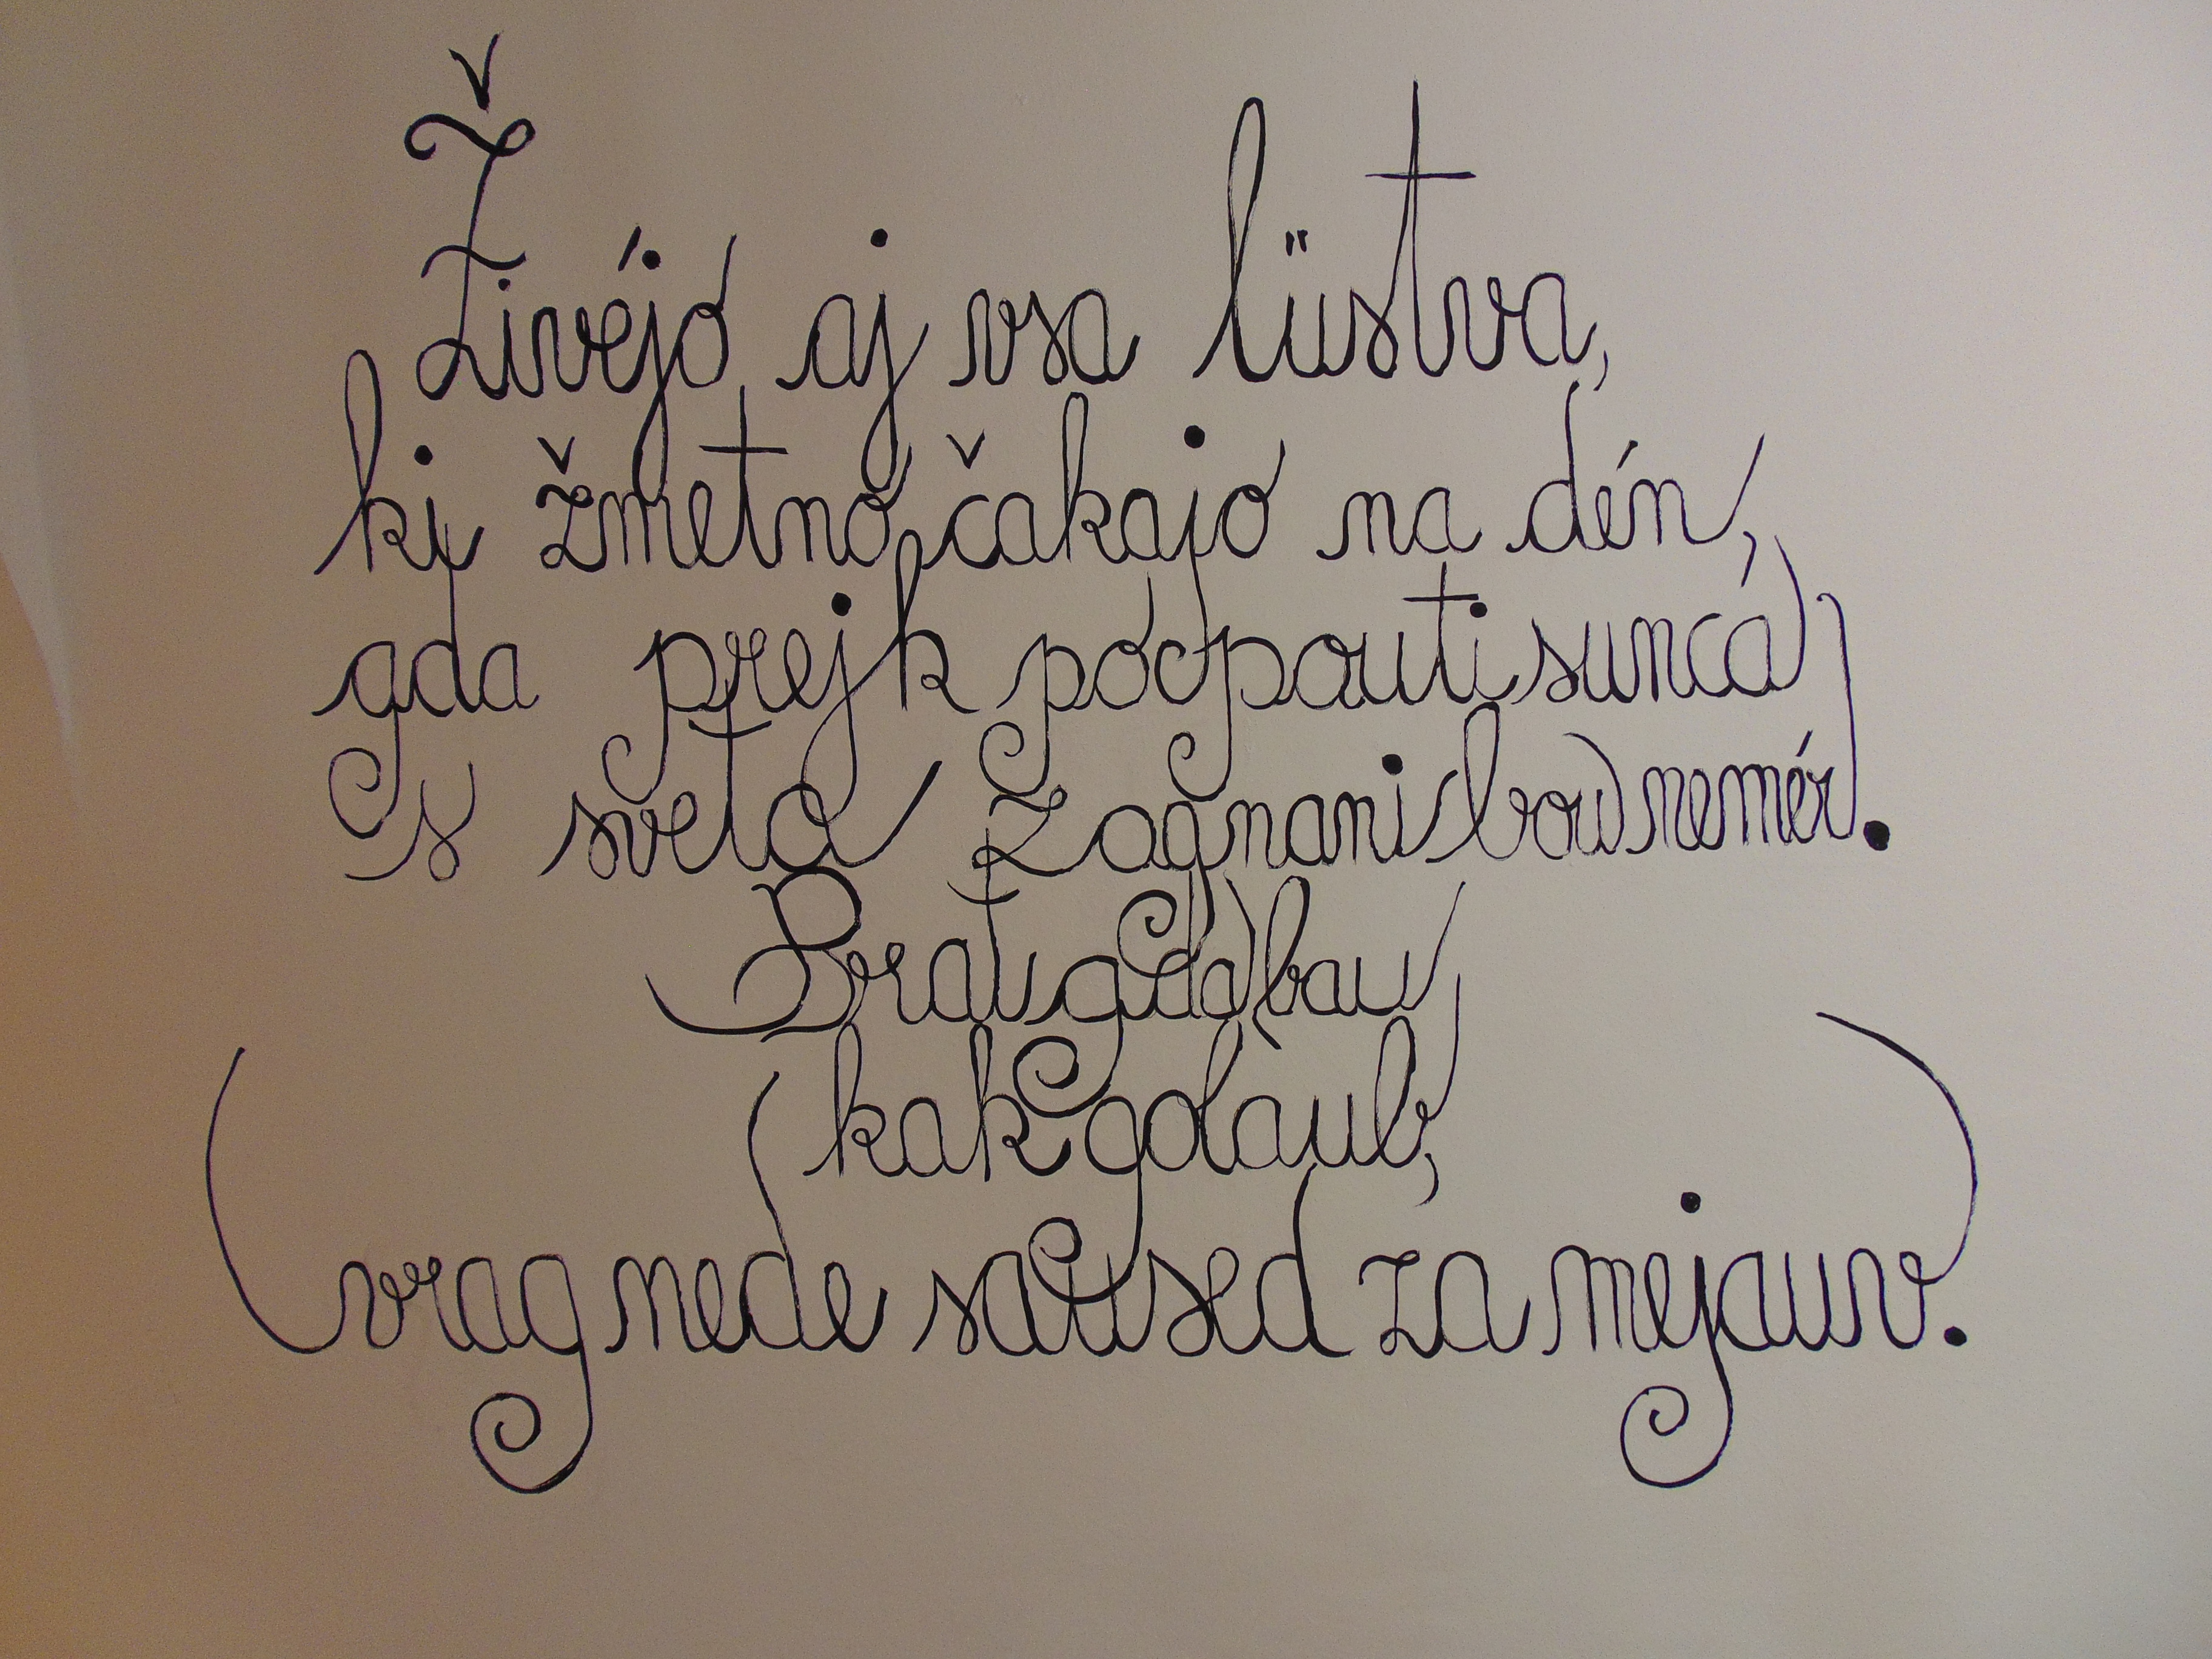 Živéjo aj vsa lüstva,
ki žmetno čakajo na dén,
gda prejk po poti sunca
s sveta zagnani bou nemér.
Brat gda bau
kak golaub,
vrag nede saused za mejauv.